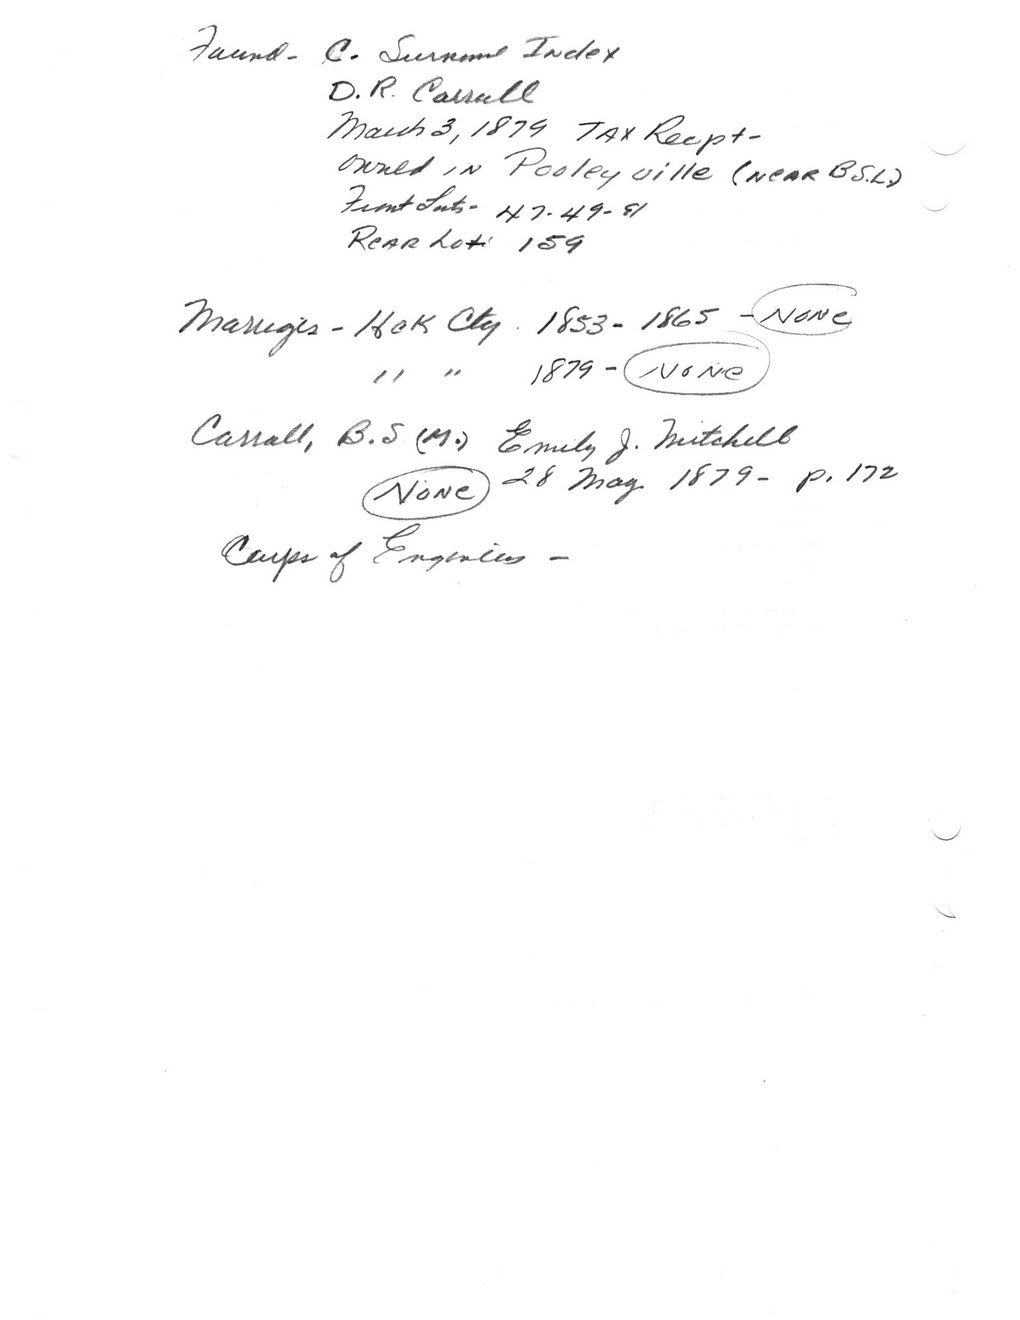 Found - C. Surname Index
D. R. Carroll
March 3, 1879 TAX Recpt -
owned IN Pooleyville (NEAR B.S.L.)
Front Lots - 47-49-81
REAR Lot 159
Marriges - Hck Cty. 1853 - 1865 - NONE
" " 1879 - NONE
Carroll, B.S (M.) Emily J. Mitchell
NONE 28 May 1879 - p. 172
Corps of Engenieers -